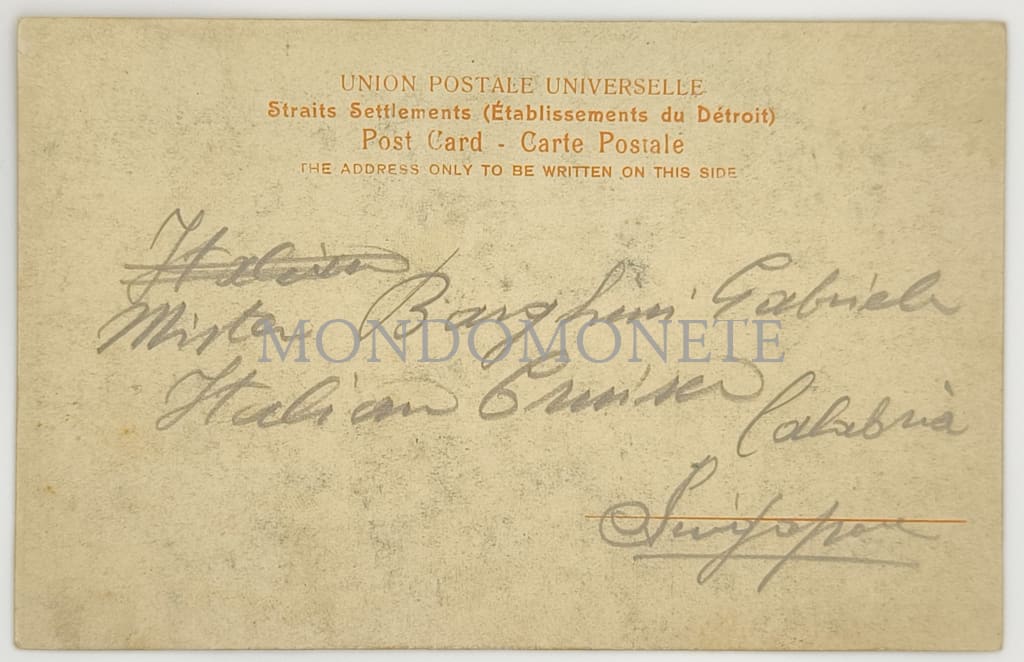 UNION POSTALE UNIVERSELLE
Straits Settlements (Établissements du Détroit)
Post Card - Carte Postale
THE ADDRESS ONLY TO BE WRITTEN ON THIS SIDE
Italian
Mister Barghini Gabriele
MONDOMONETE
Italian Cruiser
Calabria